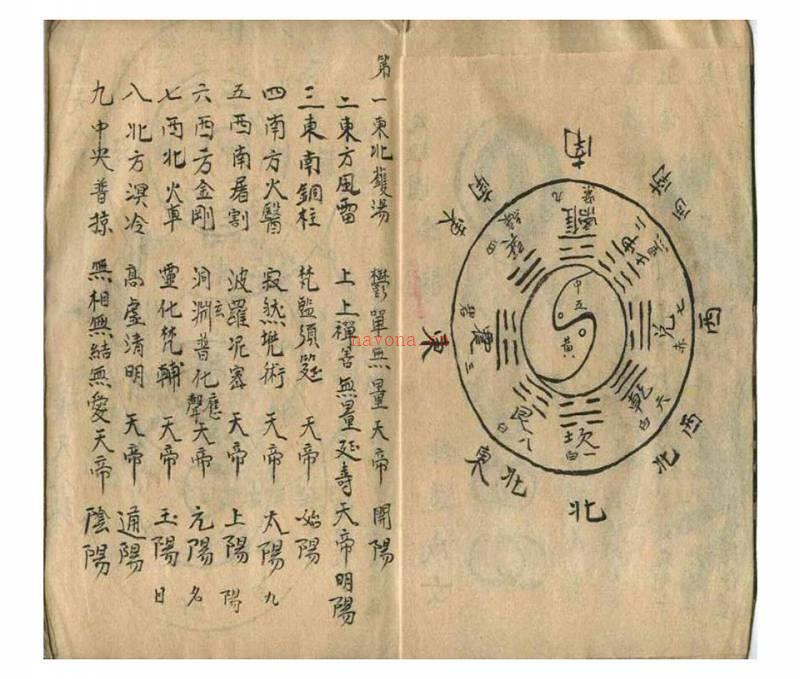 南
西南
西
西北
北
東北
東
東南
離九紫
坤二黑
兌七赤
乾六白
坎一白
艮八白
震三碧
四綠
中五
黃
第一東北鑊湯 鬱單無量天帝 開陽
二東方風雷 上上禪善無量延壽天帝明陽
三東南銅柱 梵監須筵 天帝 始陽
四南方火醫 寂然兜術 天帝 太陽 九
五西南屠割 波羅尼密 天帝 上陽 陽
六西方金剛 洞玄淵普化應聲天帝 元陽 名
七西北火車 靈化梵輔 天帝 玉陽 曰
八北方溟冷 高虛清明 天帝 通陽
九中央普掠 無相無結無愛天帝 陰陽